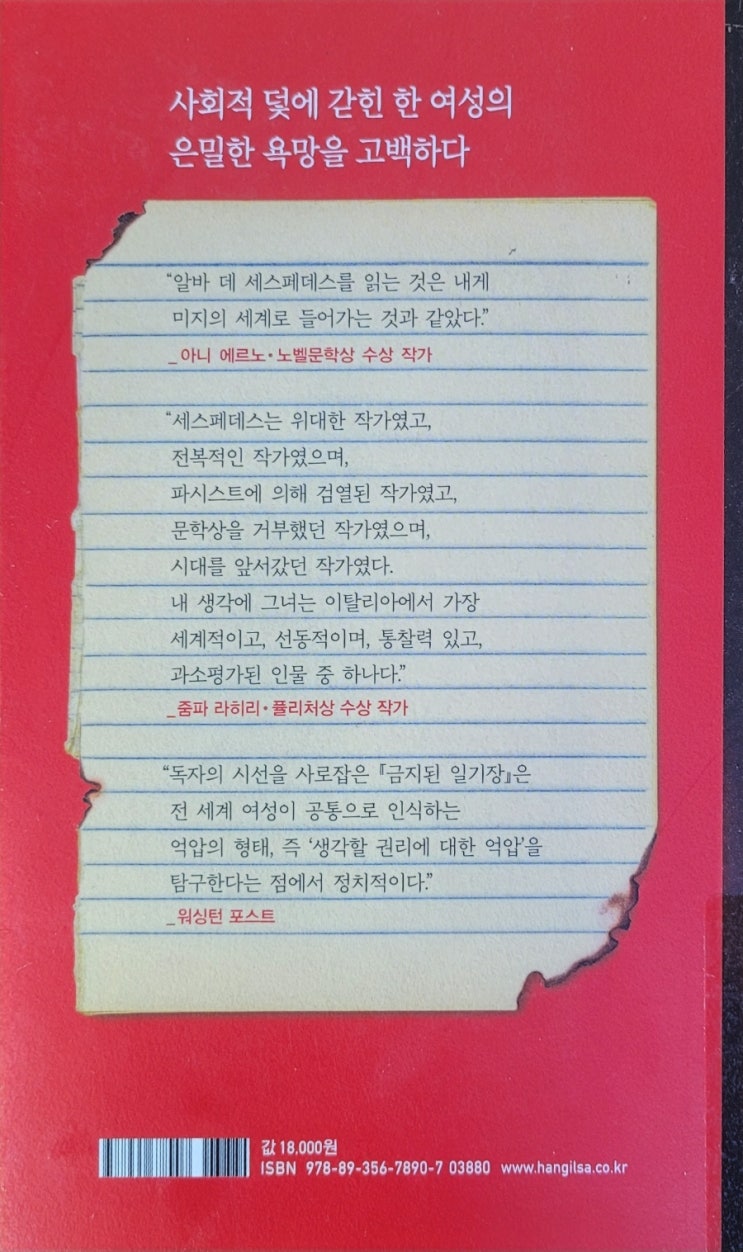 사회적 덫에 갇힌 한 여성의
은밀한 욕망을 고백하다
“알바 데 세스페데스를 읽는 것은 내게
미지의 세계로 들어가는 것과 같았다.”
_아니 에르노•노벨문학상 수상 작가
“세스페데스는 위대한 작가였고,
전복적인 작가였으며,
파시스트에 의해 검열된 작가였고,
문학상을 거부했던 작가였으며,
시대를 앞서갔던 작가였다.
내 생각에 그녀는 이탈리아에서 가장
세계적이고, 선동적이며, 통찰력 있고,
과소평가된 인물 중 하나다.”
_줌파 라히리•퓰리처상 수상 작가
“독자의 시선을 사로잡은 『금지된 일기장』은
전 세계 여성이 공통으로 인식하는
억압의 형태, 즉 ‘생각할 권리에 대한 억압’을
탐구한다는 점에서 정치적이다.”
_워싱턴 포스트
값 18,000원
ISBN 978-89-356-7890-7 03880 www.hangilsa.co.kr